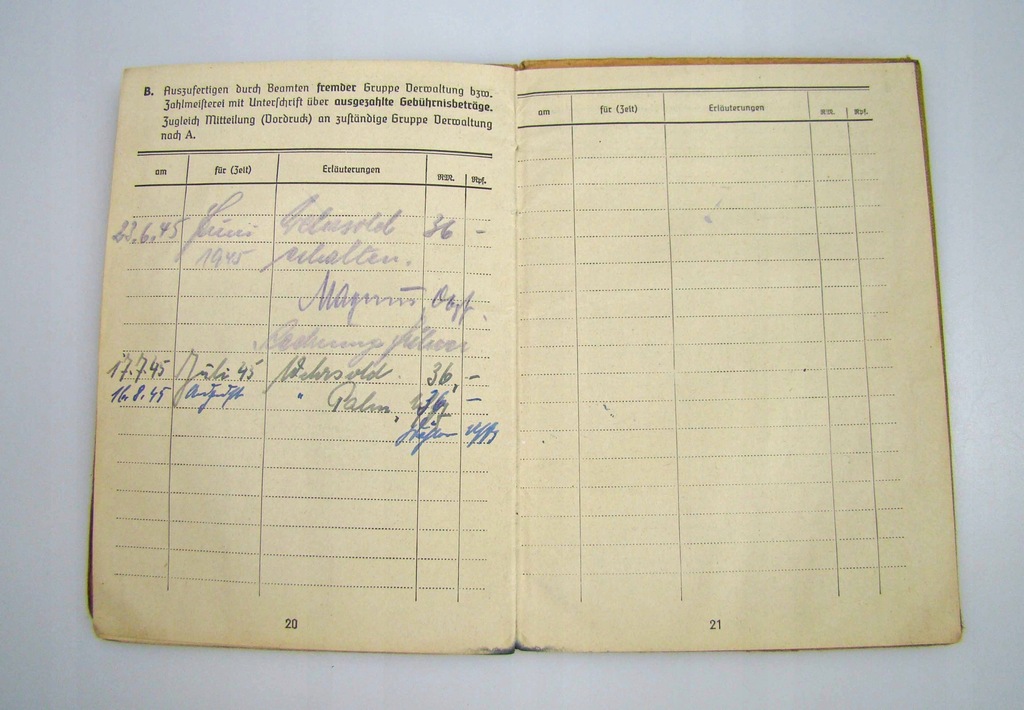 B. Auszufertigen durch Beamten fremder Gruppe Verwaltung bzw.
Zahlmeisterei mit Unterschrift über ausgezahlte Gebührnisbeträge.
Zugleich Mitteilung (Vordruck) an zuständige Gruppe Verwaltung
nach A.
am für (Zeit) Erläuterungen RM. Rpf.
23.6.45 Juni Wehrsold 36 -
1945 erhalten.
Magnus
Rechnungsführer
17.7.45 Juli 45 Wehrsold 36,-
16.8.45 August " Palm, 36 -
20
am für (Zeit) Erläuterungen RM. Rpf.
21